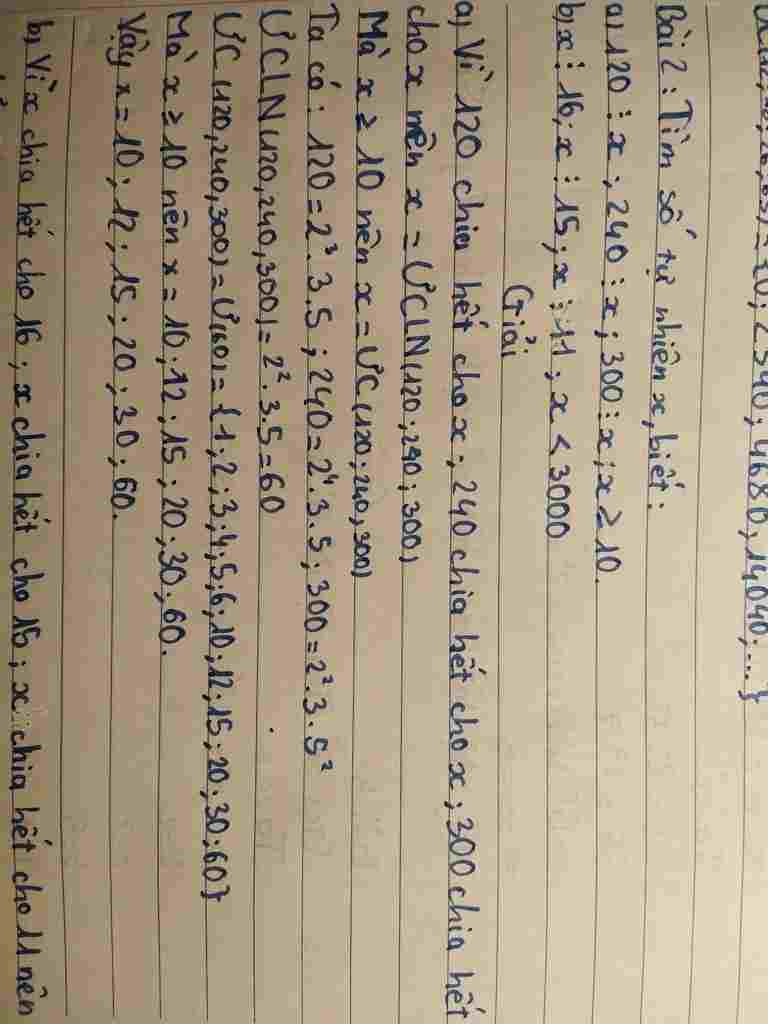 20; 2340; 4680; 14040;...}
Bài 2: Tìm số tự nhiên x, biết:
a) 120 ⋮ x; 240 ⋮ x; 300 ⋮ x; x ≥ 10.
b) x ⋮ 16; x ⋮ 15; x ⋮ 11; x < 3000
Giải
a) Vì 120 chia hết cho x; 240 chia hết cho x; 300 chia hết
cho x nên x = ƯCLN(120; 240; 300)
Mà x ≥ 10 nên x = ƯC(120; 240, 300)
Ta có: 120 = 2³.3.5; 240 = 2⁴.3.5; 300 = 2².3.5²
ƯCLN(120,240,300) = 2².3.5 = 60
ƯC(120,240,300) = Ư(60) = {1;2;3;4;5;6;10;12;15;20;30;60}
Mà x ≥ 10 nên x = 10;12;15;20;30;60.
Vậy x = 10; 12; 15; 20; 30; 60.
b) Vì x chia hết cho 16; x chia hết cho 15; x chia hết cho 11 nên